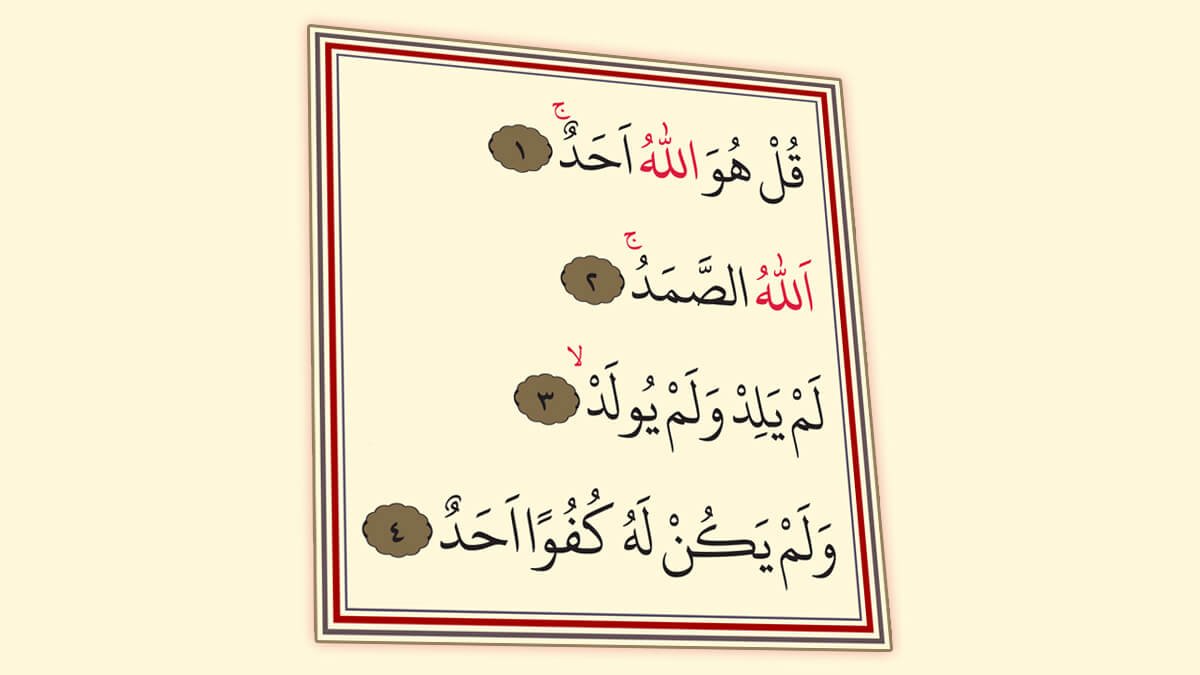 قُلْ هُوَ اللّٰهُ اَحَدٌۚ ١
اَللّٰهُ الصَّمَدُۚ ٢
لَمْ يَلِدْ وَلَمْ يُولَدْۙ ٣
وَلَمْ يَكُنْ لَهُ كُفُوًا اَحَدٌ ٤